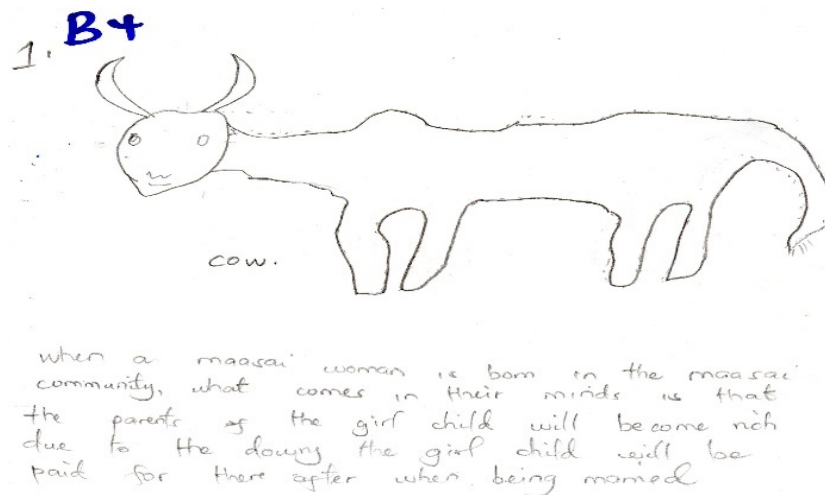 B+
1.
cow.
when a maasai woman is born in the maasai
community, what comes in their minds is that
the parents of the girl child will become rich
due to the dowry the girl child will be
paid for there after when being married